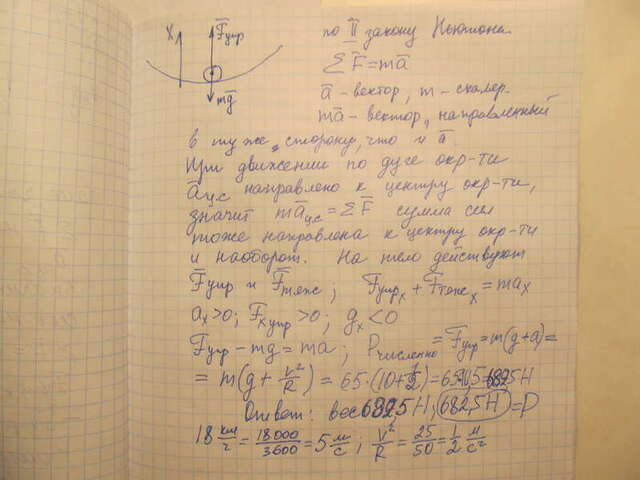 X F̅упр
mg̅
по II закону Ньютона
ΣF̅ = ma̅
a̅ - вектор, m - скаляр.
ma̅ - вектор, направленный
в ту же сторону, что и a̅.
При движении по дуге окр-ти
a̅ц.с направлено к центру окр-ти,
значит ma̅ц.с = ΣF̅ сумма сил
тоже направлена к центру окр-ти
и наоборот. На тело действуют
F̅упр и F̅тяж; Fупрx + Fтяжx = max
ax>0; Fxупр >0; gx<0
Fупр - mg = ma; Pчисленно = Fупр = m(g+a) =
= m(g + v²/R) = 65·(10+1/2) = 682,5 Н
Ответ: вес 682,5 Н; (682,5 Н) = P
18 км/ч = 18000/3600 = 5 м/с; v²/R = 25/50 = 1/2 м/с²